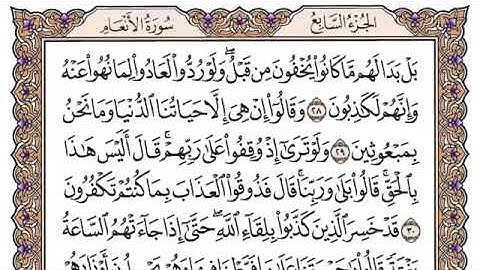 سورة الأنعام الجزء السابع
بَلْ بَدَا لَهُم مَّا كَانُوا۟ يُخْفُونَ مِن قَبْلُ ۖ وَلَوْ رُدُّوا۟ لَعَادُوا۟ لِمَا نُهُوا۟ عَنْهُ
وَإِنَّهُمْ لَكَٰذِبُونَ ٢٨ وَقَالُوٓا۟ إِنْ هِىَ إِلَّا حَيَاتُنَا ٱلدُّنْيَا وَمَا نَحْنُ
بِمَبْعُوثِينَ ٢٩ وَلَوْ تَرَىٰٓ إِذْ وُقِفُوا۟ عَلَىٰ رَبِّهِمْ ۚ قَالَ أَلَيْسَ هَٰذَا
بِٱلْحَقِّ ۚ قَالُوا۟ بَلَىٰ وَرَبِّنَا ۚ قَالَ فَذُوقُوا۟ ٱلْعَذَابَ بِمَا كُنتُمْ تَكْفُرُونَ
٣٠ قَدْ خَسِرَ ٱلَّذِينَ كَذَّبُوا۟ بِلِقَآءِ ٱللَّهِ ۖ حَتَّىٰٓ إِذَا جَآءَتْهُمُ ٱلسَّاعَةُ